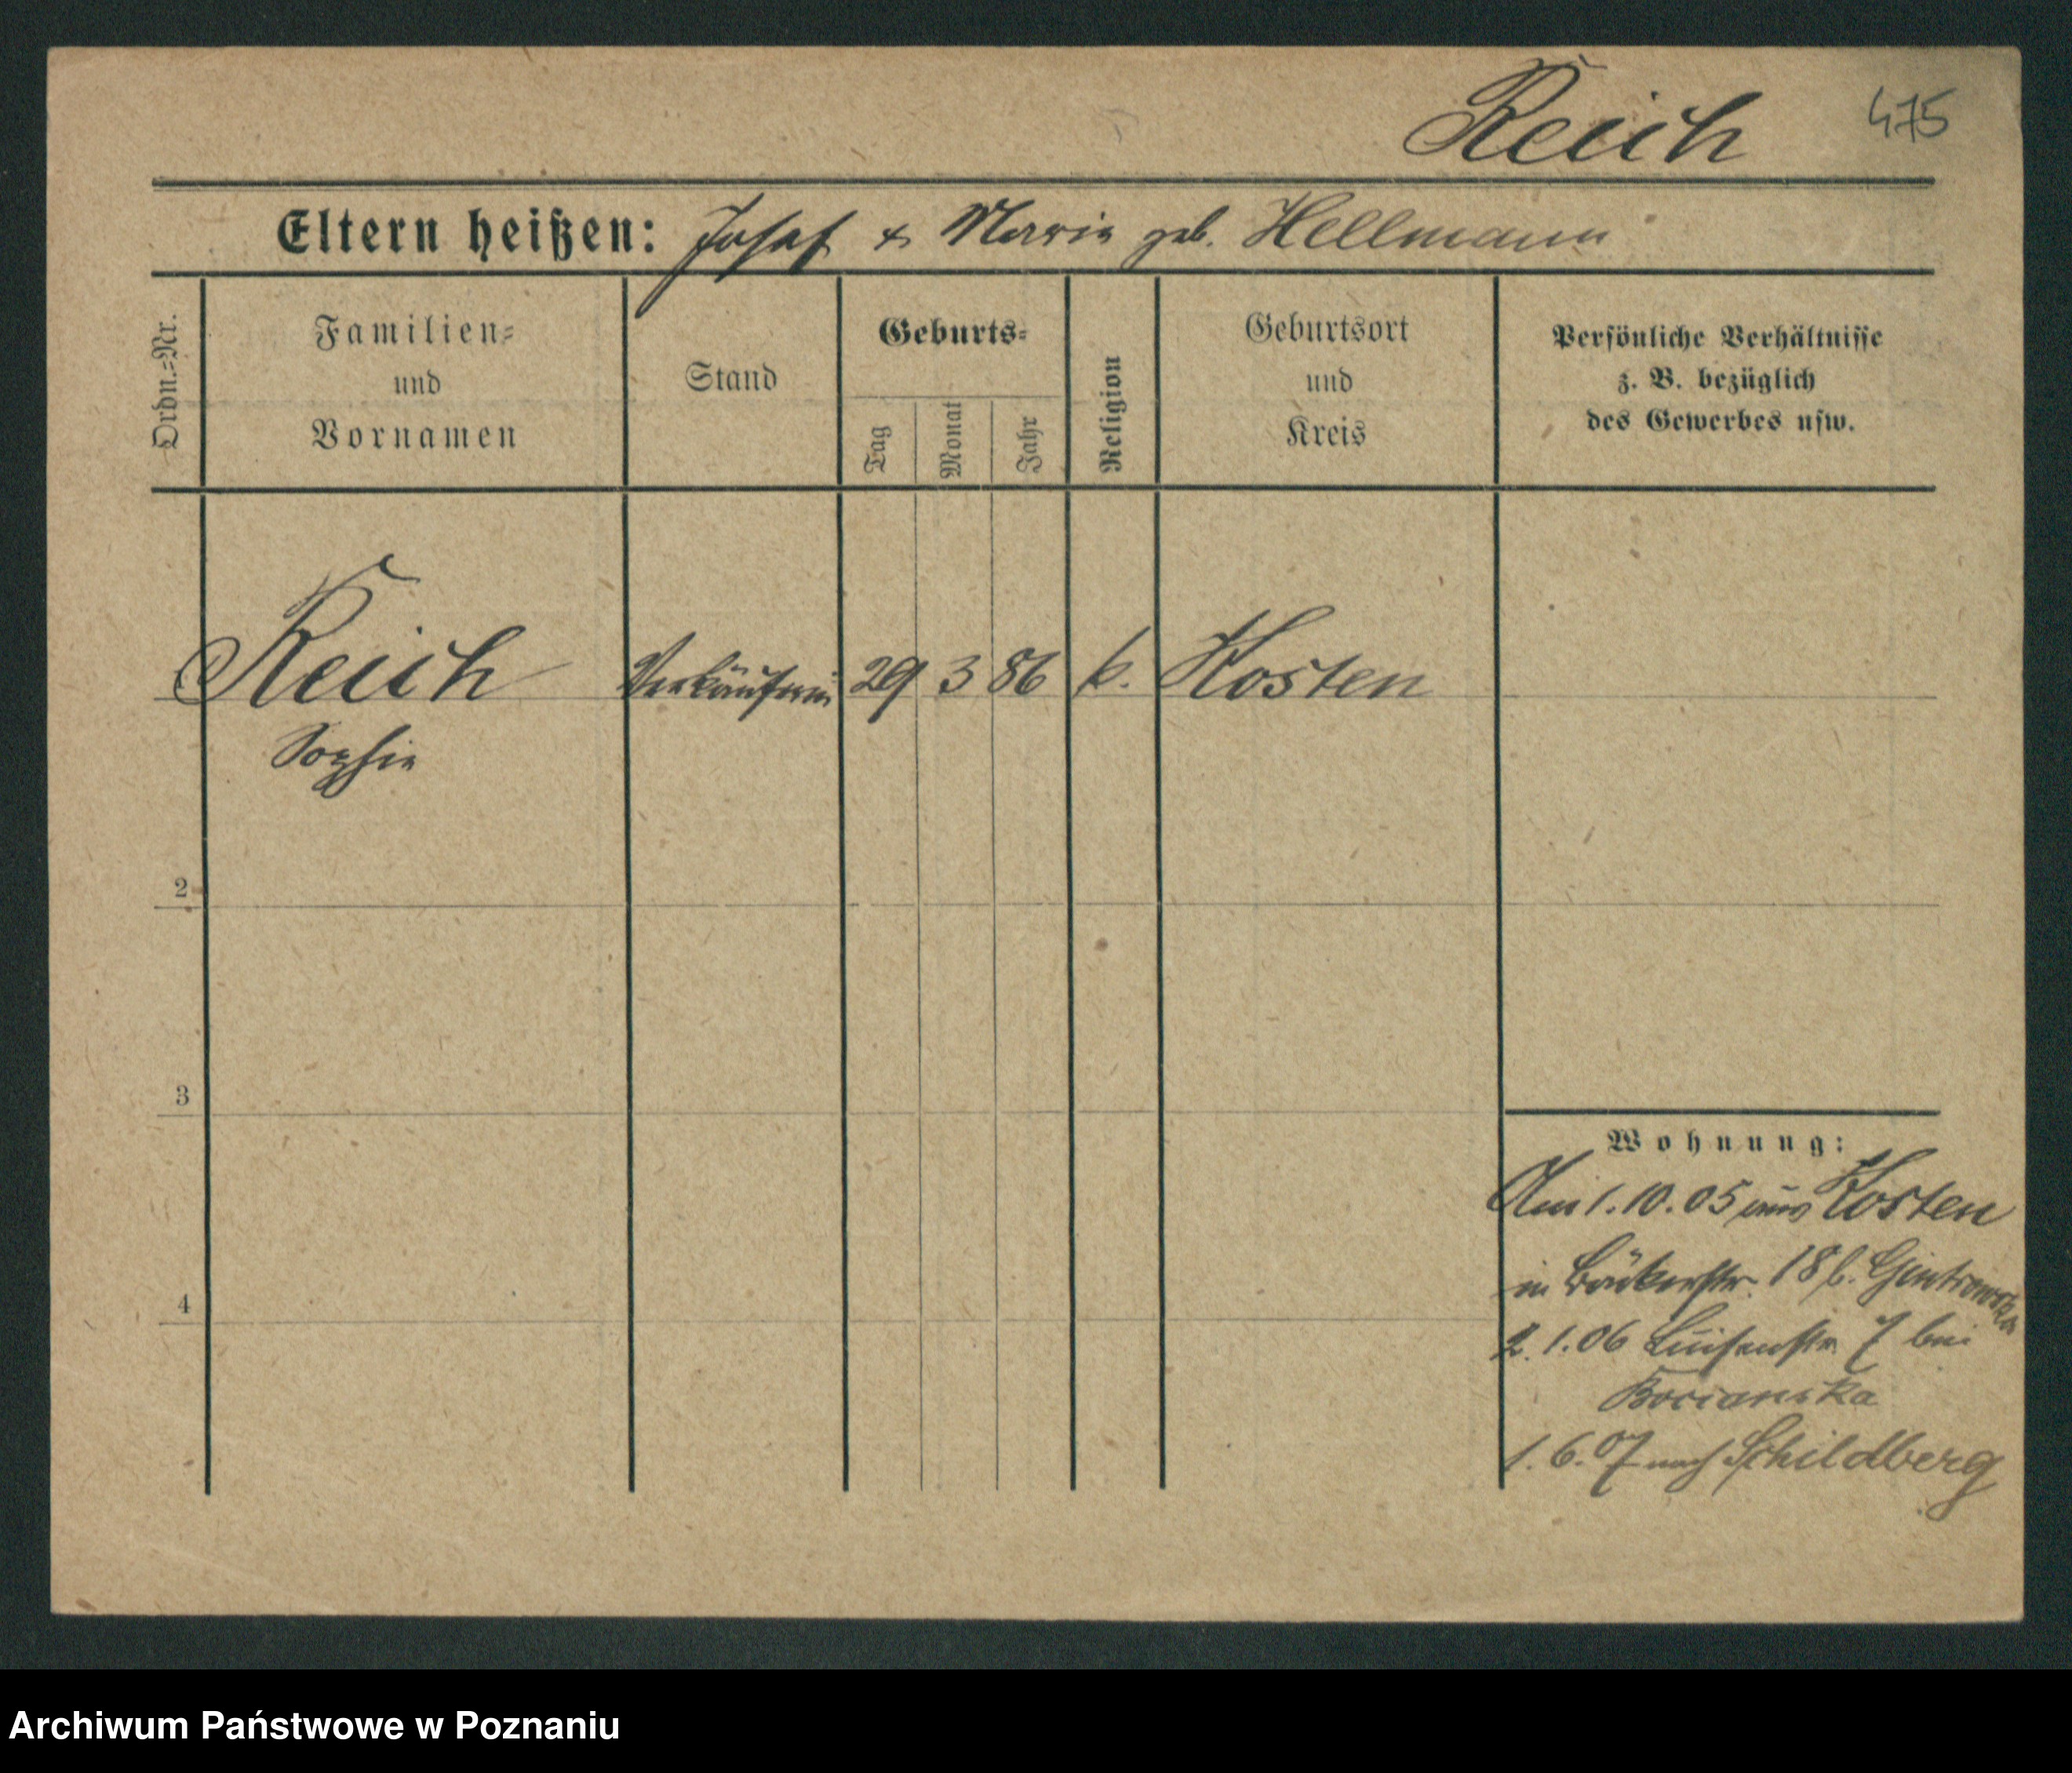 Reich 475
Eltern heißen: Josef & Marie geb. Hellmann
Ordn.-Nr.
Familien-
und
Vornamen
Stand
Geburts-
Tag
Monat
Jahr
Religion
Geburtsort
und
Kreis
Persönliche Verhältnisse
z. B. bezüglich
des Gewerbes usw.
Reich Verkäuferin 29 3 86 k. Kosten
Sophie
2
3
4
Wohnung:
Am 1.10.05 aus Kosten
in Bäckerstr. 18 b.
2.1.06 Luisenstr. 7 bei
Bocianska
1.6.07 nach Schildberg
Archiwum Państwowe w Poznaniu